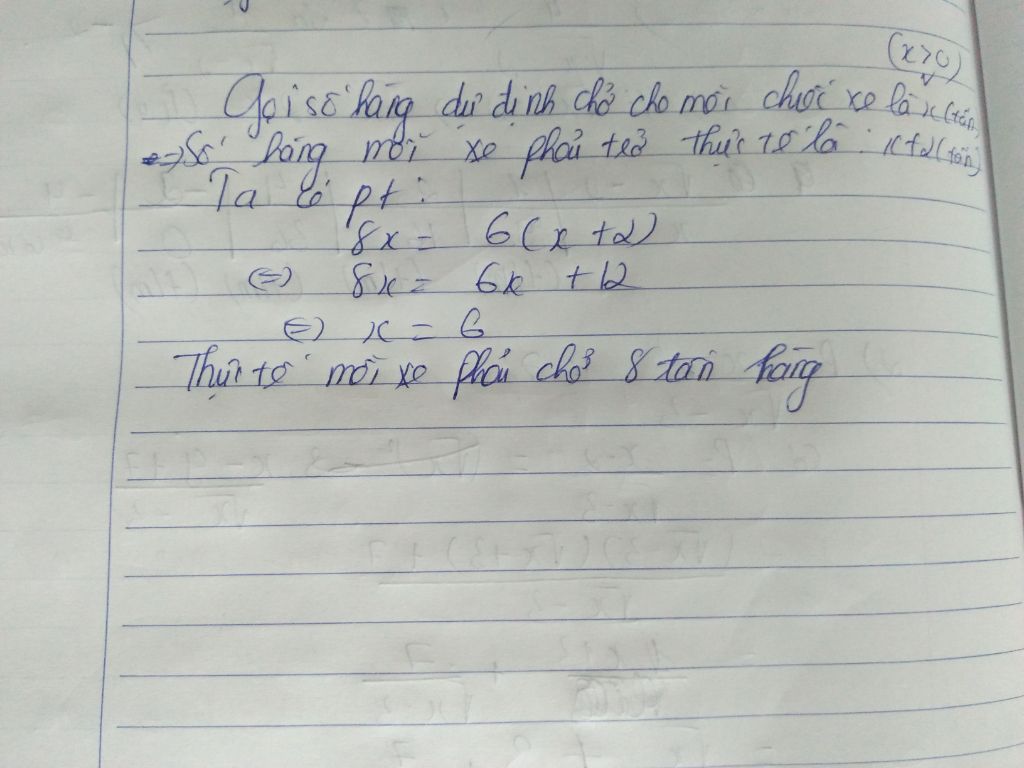 (x>0)
Gọi số hàng dự định chở cho mỗi chiếc xe là x (tấn)
=> Số hàng mỗi xe phải trở thực tế là : x+2 (tấn)
Ta có pt :
8x = 6(x+2)
<=> 8x = 6x +12
<=> x = 6
Thực tế mỗi xe phải chở 8 tấn hàng